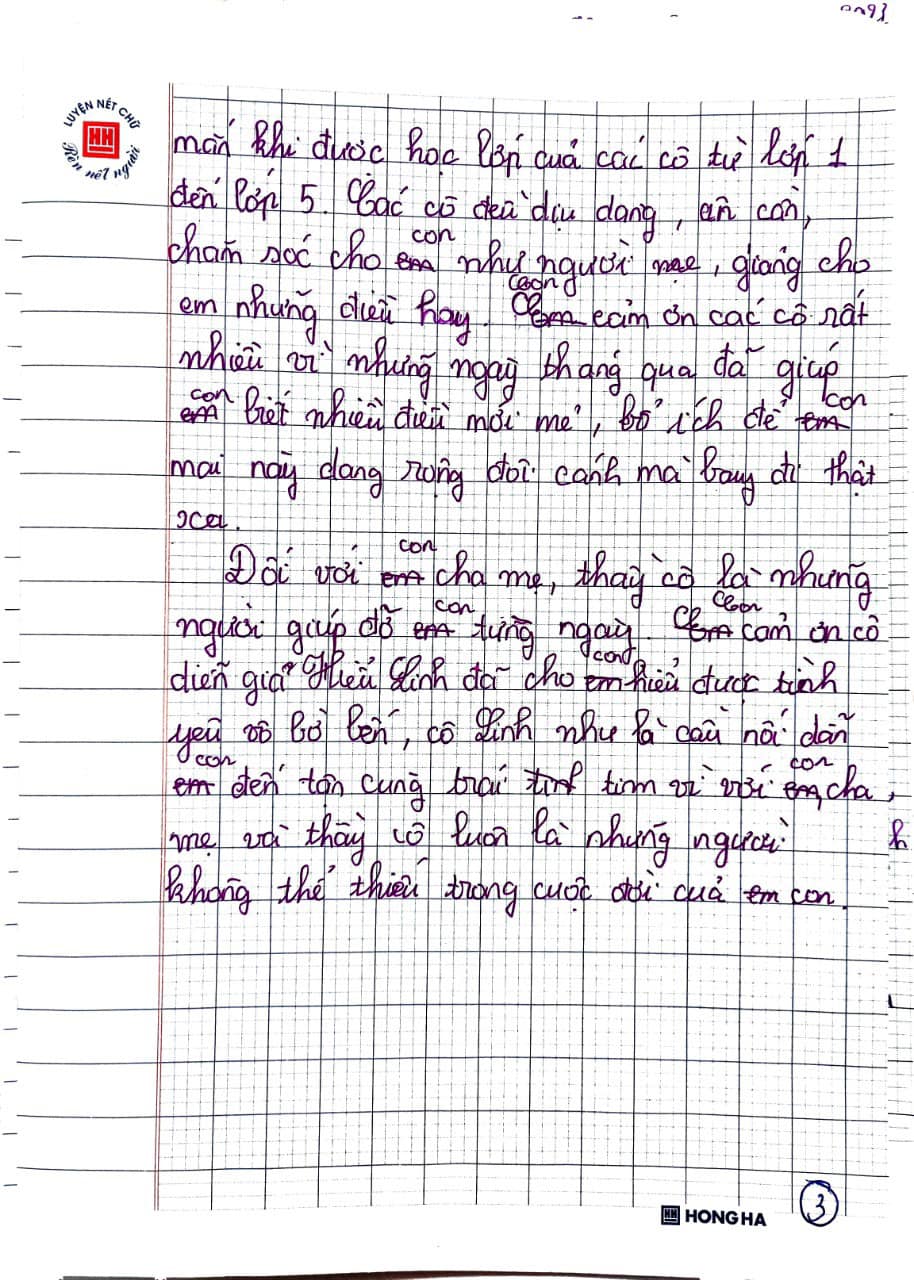 LUYỆN NÉT CHỮ
HH
Rèn nết người
mắn khi được học lớp của các cô từ lớp 1
đến lớp 5. Các cô đều dịu dàng, ân cần,
con
chăm sóc cho em như người mẹ, giảng cho
Con
em những điều hay. Em cảm ơn các cô rất
nhiều vì những ngày tháng qua đã giúp
con con
em biết nhiều điều mới mẻ, bổ ích để em
mai này dang rộng đôi cánh mà bay đi thật
xa.
con
Đối với em cha mẹ, thầy cô là những
con Con
người giúp đỡ em từng ngày. Em cảm ơn cô
con
diễn giả Hiếu Linh đã cho em hiểu được tình
yêu vô bờ bến, cô Linh như là cầu nối dẫn
con con
em đến tận cùng trái tim vì với em, cha,
mẹ và thầy cô luôn là những người
không thể thiếu trong cuộc đời của em con.
h
HH HONG HA
3